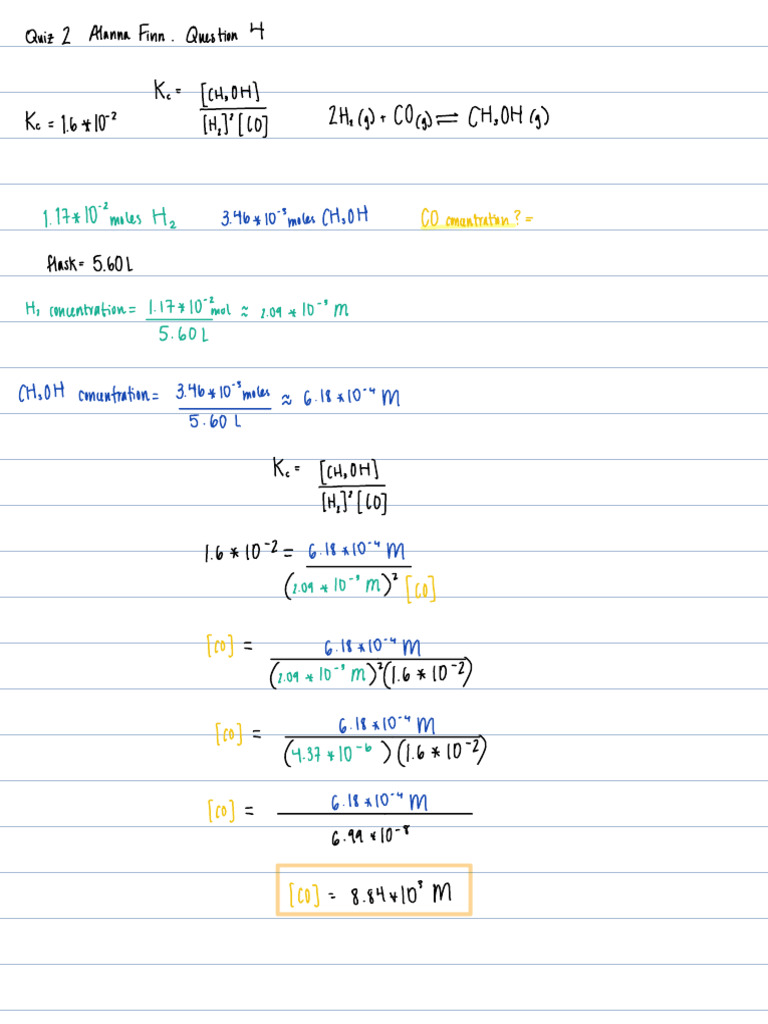 Quiz 2 Alanna Finn. Question 4
Kc = [CH₃OH] / [H₂]² [CO]
Kc = 1.6 * 10⁻² 2H₂(g) + CO(g) ⇌ CH₃OH (g)
1.17 * 10⁻² moles H₂ 3.46 * 10⁻³ moles CH₃OH CO concentration? =
flask = 5.60 L
H₂ concentration = 1.17 * 10⁻² mol / 5.60 L ≈ 2.09 * 10⁻³ M
CH₃OH concentration = 3.46 * 10⁻³ moles / 5.60 L ≈ 6.18 * 10⁻⁴ M
Kc = [CH₃OH] / [H₂]² [CO]
1.6 * 10⁻² = 6.18 * 10⁻⁴ M / (2.09 * 10⁻³ M)² [CO]
[CO] = 6.18 * 10⁻⁴ M / (2.09 * 10⁻³ M)² (1.6 * 10⁻²)
[CO] = 6.18 * 10⁻⁴ M / (4.37 * 10⁻⁶) (1.6 * 10⁻²)
[CO] = 6.18 * 10⁻⁴ M / 6.99 * 10⁻⁸
[CO] = 8.84 * 10³ M